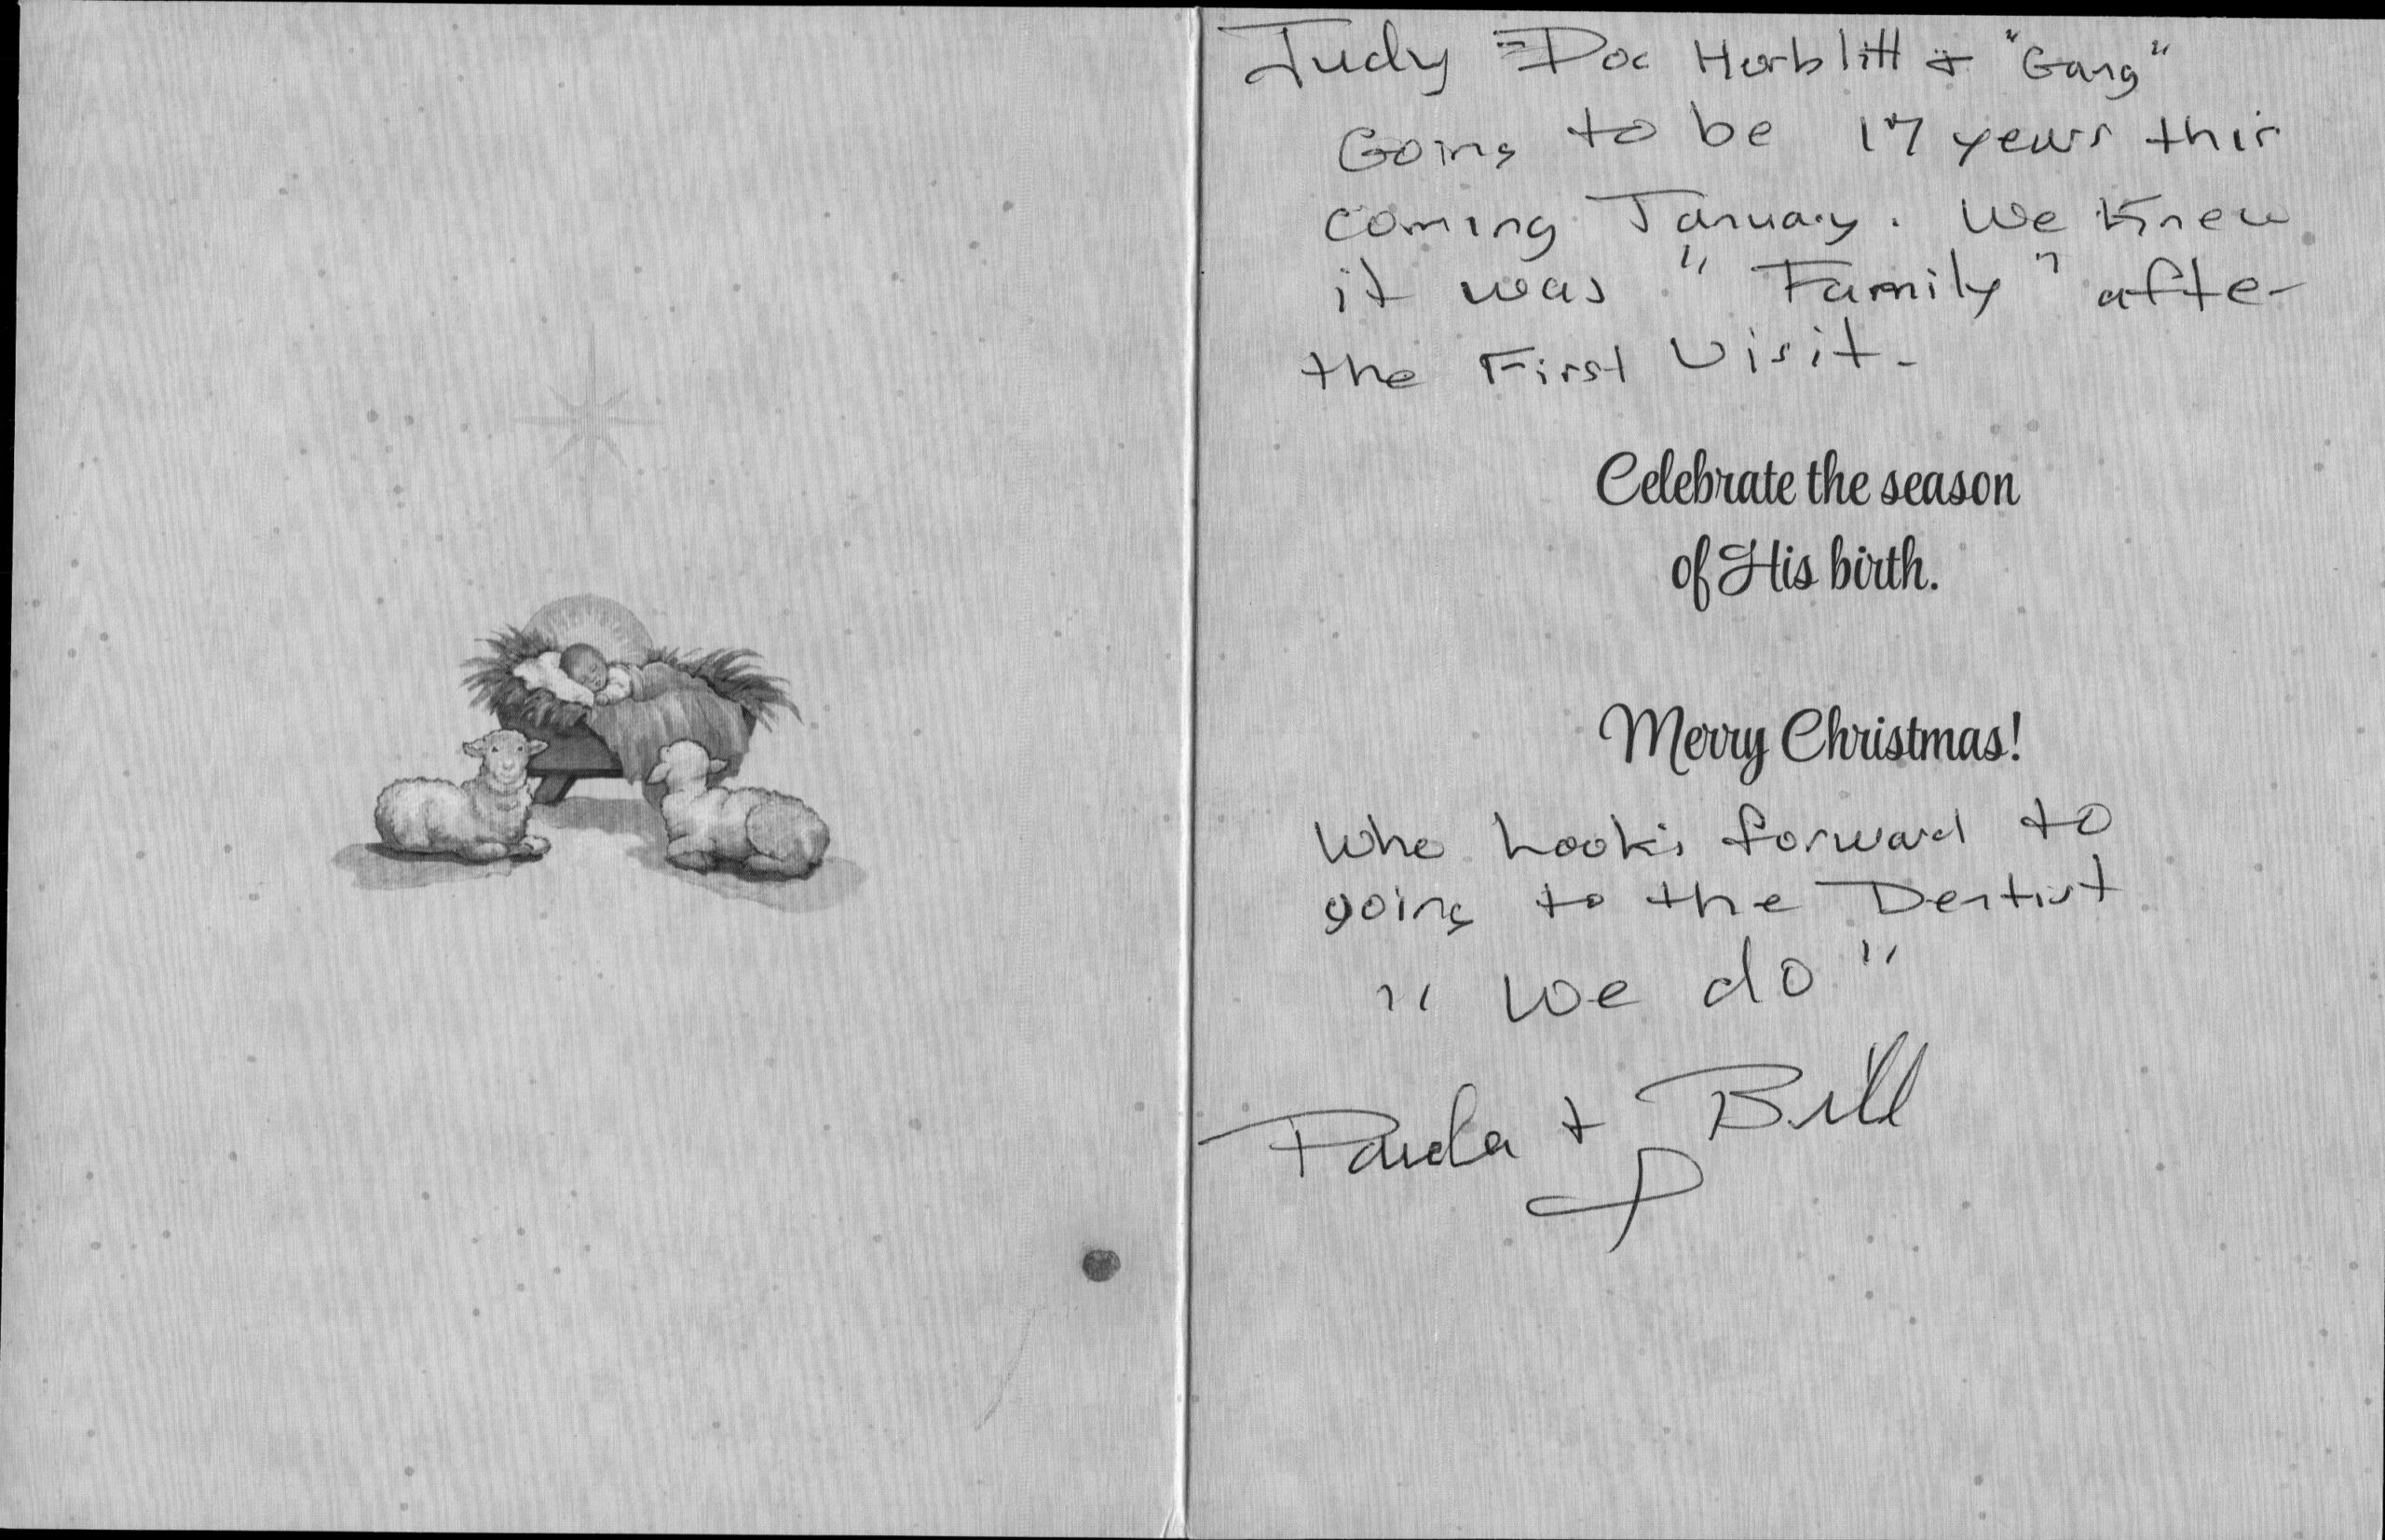 Judy "Doc Horblitt + "Gang"
Going to be 17 years this
coming January. We Knew
it was "Family" after
the First Visit.
Celebrate the season
of His birth.
Merry Christmas!
Who looks forward to
going to the Dentist
"We do"
Paula + Bill